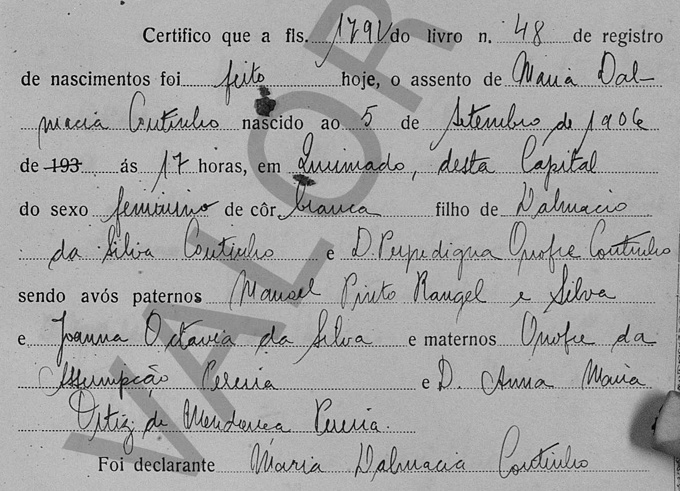 Certifico que a fls. 179V do livro n. 48 de registro
de nascimentos foi feito hoje, o assento de Maria Dal-
macia Coutinho nascido ao 5 de Setembro de 1906
de 193 ás 17 horas, em Queimado, desta Capital
do sexo feminino de côr branca filho de Dalmacio
da Silva Coutinho e D. Perpedigna Onofre Coutinho
sendo avós paternos Manoel Pinto Rangel e Silva
e Joanna Octavia da Silva e maternos Onofre da
Assumpcão Pereria e D. Anna Maria
Ortiz de Mendonca Pereria.
Foi declarante Maria Dalmacia Coutinho
VALOR